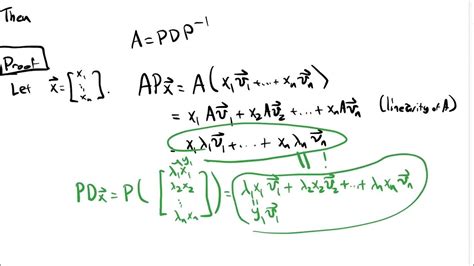 Then
A = PDP⁻¹
Proof
Let x⃗ = [x₁ ⋮ xₙ]. APx⃗ = A(x₁v⃗₁ + ... + xₙv⃗ₙ)
= x₁Av⃗₁ + x₂Av⃗₂ + ... + xₙAv⃗ₙ (linearity of A)
= x₁λ₁v⃗₁ + ... + xₙλₙv⃗ₙ
|| !
y₁
PDx⃗ = P([λ₁x₁ λ₂x₂ ⋮ λₙxₙ]) = λ₁x₁v⃗₁ + λ₂x₂v⃗₂ + ... + λₙxₙv⃗ₙ
||
y₁v⃗₁